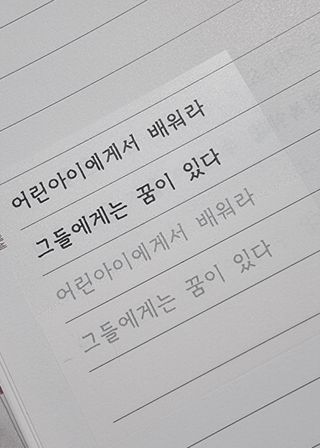 어린아이에게서 배워라
그들에게는 꿈이 있다
어린아이에게서 배워라
그들에게는 꿈이 있다